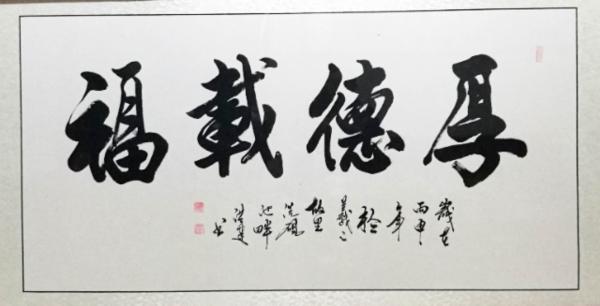 厚德載福
歲在
丙申
年
於
羲之
故里
洗硯
池畔
书